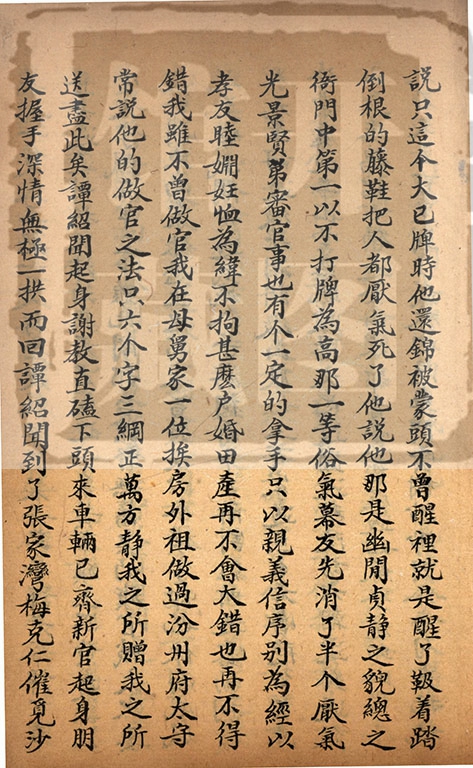 說只這今大已牌時他還錦被蒙頭不曾醒裡就是醒了靸着踏
倒根的藤鞋把人都厭氣死了他說他那是幽閒貞静之貌總之
衙門中第一以不打牌為高那一等俗氣幕友先消了半个厭氣
光景賢弟審官事也有个一定的拿手只以親義信序别為經以
孝友睦婣姙恤為緯不拘甚麽户婚田產再不會大錯也再不得
錯我雖不曾做官我在母舅家一位挨房外祖做過汾州府太守
常說他的做官之法只六个字三綱正萬方静我之所贈我之所
送盡此矣譚紹聞起身謝教直磕下頭來車輛已齊新官起身朋
友握手深情無極一拱而回譚紹聞到了張家灣梅克仁催覓沙